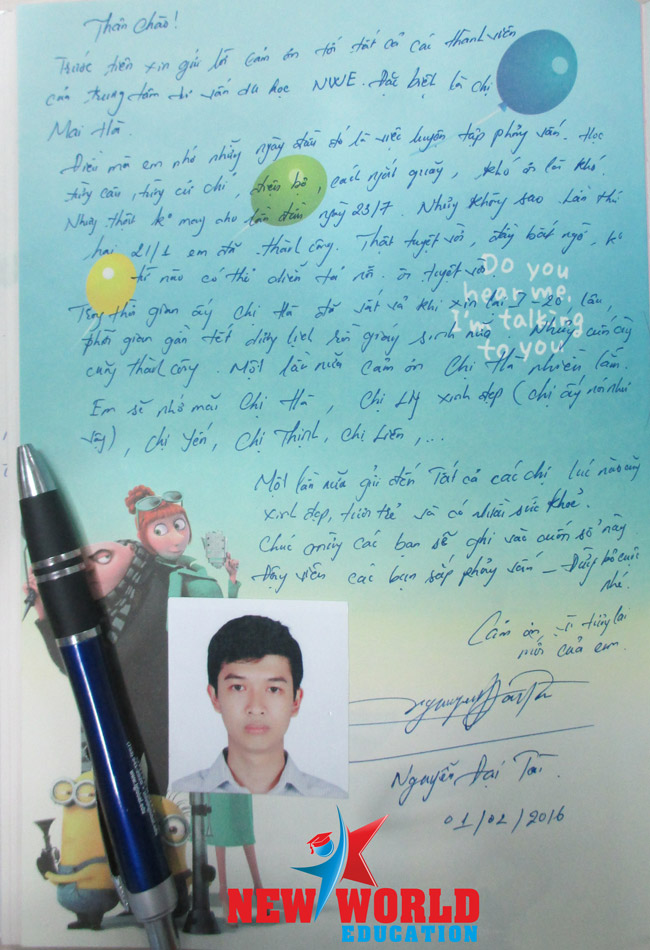 Thân chào!
Trước tiên xin gửi lời cảm ơn tới tất cả các thành viên
của trung tâm tư vấn du học NWE. Đặc biệt là chị
Mai Hà.
Điều mà em nhớ những ngày đầu đó là việc luyện tập phỏng vấn. Học
từng câu, từng cử chỉ, điệu bộ, cách ngắt quãng, khó ơi là khó.
Nhưng thật k° may cho lần đầu ngày 23/7. Nhưng không sao lần thứ
hai 21/1 em đã thành công. Thật tuyệt vời, đầy bất ngờ, k°
thể nào có thể diễn tả nổi. ôi tuyệt vời
Do you
hear me,
I'm talking
to you
Trong thời gian ấy chị Hà đã vất vả khi xin lại 7-20 lần,
thời gian gần tết dương lịch rồi giáng sinh nữa. Nhưng cuối cùng
cũng thành công. Một lần nữa cảm ơn Chị Hà nhiều lắm.
Em sẽ nhớ mãi Chị Hà, Chị Ly xinh đẹp (chị ấy nói như
vậy), chị Yến, Chị Thịnh, chị Liên, ...
Một lần nữa gửi đến Tất cả các chị lúc nào cũng
xinh đẹp, tươi trẻ và có nhiều sức khoẻ.
Chúc mừng các bạn sẽ ghi vào cuốn sổ này
Động viên các bạn sắp phỏng vấn – Đừng bỏ cuộc
nhé.
Cảm ơn vì tương lai
mới của em.
Nguyễn Đại Tài
01/02/2016
NEW WORLD
EDUCATION